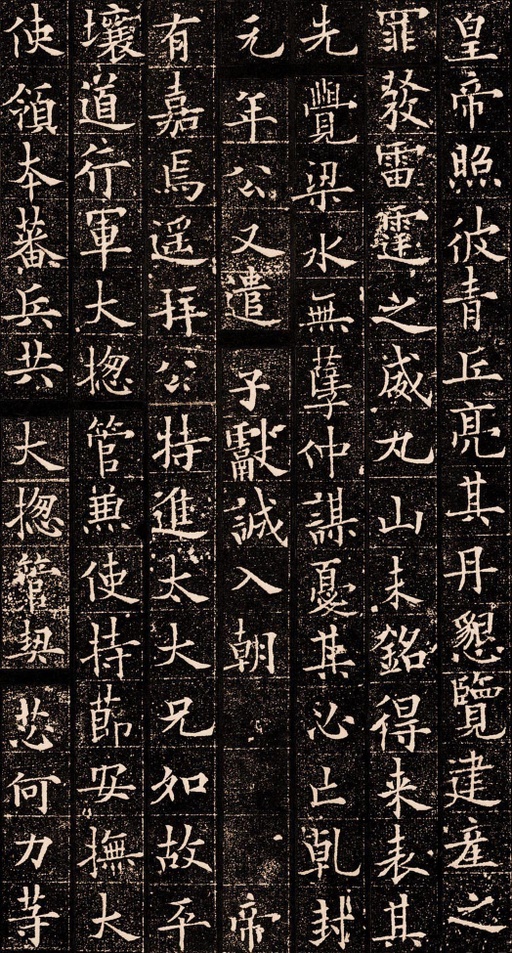 皇帝照彼青丘亮其丹懇覽建產之
罪發雷霆之威丸山未銘得来表其
先覺梁水無孽仲謀憂其必亡乹封
元年公又遣子獻誠入朝 帝
有嘉焉遥拜公特進太大兄如故平
壤道行軍大揔管兼使持莭安撫大
使領夲蕃兵共大揔管契苾何力等